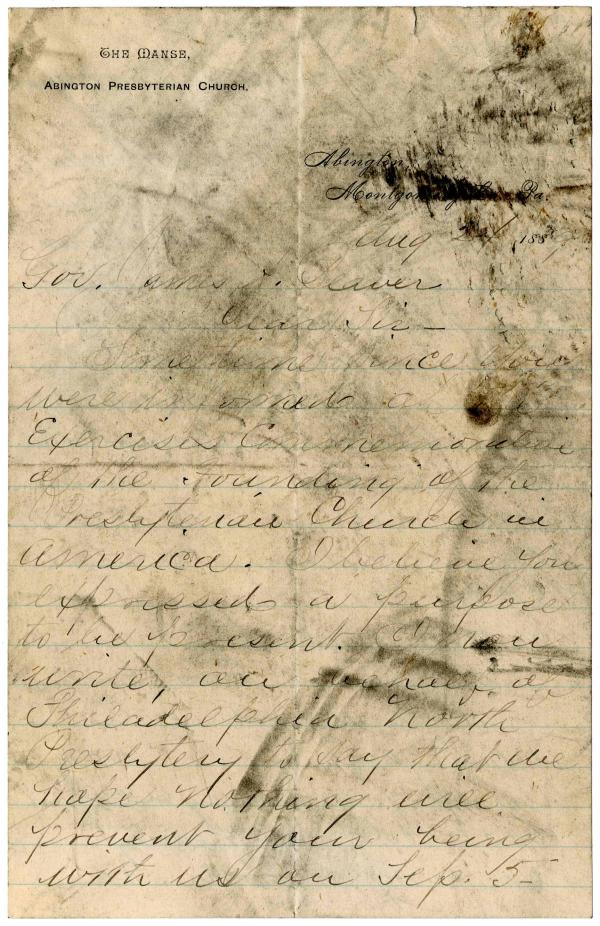 The Manse,
Abington Presbyterian Church,
Abington,
Montgomery Co., Pa.
Aug 188
Gov. James A. Beaver
Dear Sir —
Some time since you
were informed
Exercises Commemorative
of the Founding of the
Presbyterian Church in
America. I believe you
expressed a purpose
to be present. I now
write, on behalf of
Philadelphia North
Presbytery to say that we
hope nothing will
prevent your being
with us on Sep. 5 —